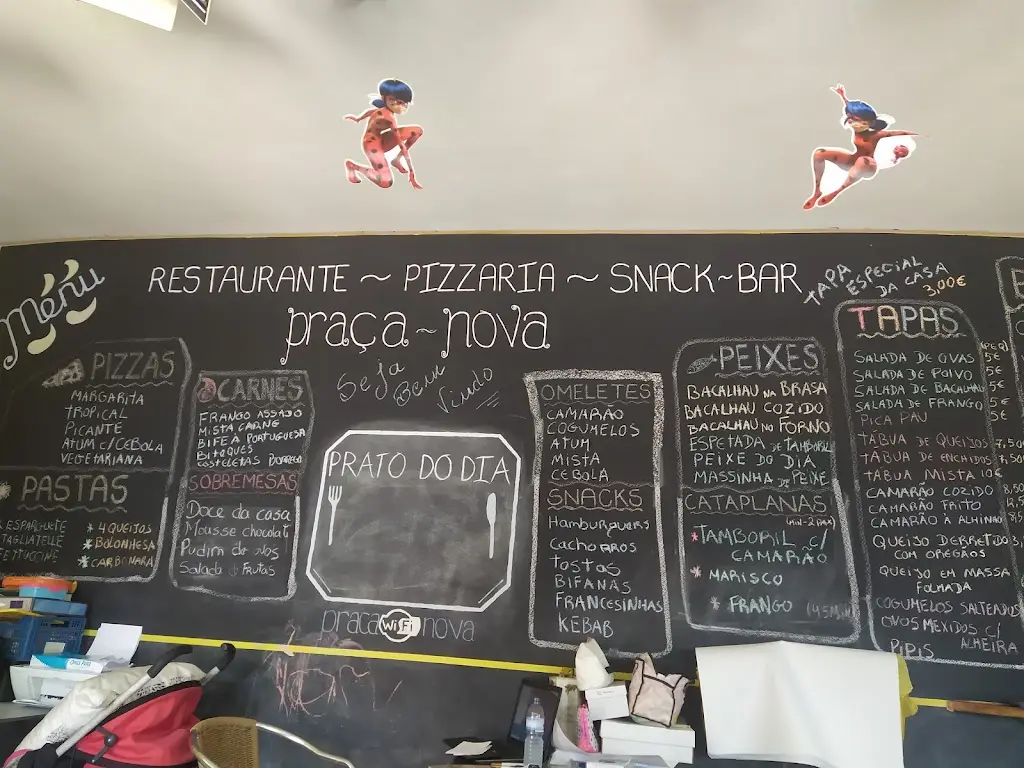 Menu
RESTAURANTE ~ PIZZARIA ~ SNACK-BAR
praça ~ nova
Seja
Bem
Vindo
PIZZAS
MARGARITA
TROPICAL
PICANTE
ATUM c/CEBOLA
VEGETARIANA
PASTAS
ESPARGUETE
TAGLIATELLE
FETTUCCINE
* 4 QUEIJOS
* BOLONHESA
* CARBONARA
CARNES
FRANGO ASSADO
MISTA CARNE
BIFE À PORTUGUESA
BITOQUES
COSTELETAS BORREGO
SOBREMESAS
Doce da casa
Mousse chocolate
Pudim de ovos
Salada de Frutas
PRATO DO DIA
praça WiFi nova
OMELETES
CAMARÃO
COGUMELOS
ATUM
MISTA
CEBOLA
SNACKS
Hamburguers
Cachorros
TOSTAS
BIFANAS
FRANCESINHAS
KEBAB
PEIXES
BACALHAU NA BRASA
BACALHAU COZIDO
BACALHAU NO FORNO
ESPETADA DE TAMBORIL
PEIXE DO DIA
MASSINHA DE PEIXE
CATAPLANAS
(MIN-2 PAX)
* TAMBORIL c/
CAMARÃO
* MARISCO
* FRANGO
TAPA
ESPECIAL
DA CASA
3,00€
TAPAS
SALADA DE OVAS 5€
SALADA DE POLVO 5€
SALADA DE BACALHAU 5€
SALADA DE FRANGO 5€
PICA PAU
TÁBUA DE QUEIJOS 7,50
TÁBUA DE ENCHIDOS
TÁBUA MISTA 10€
CAMARÃO COZIDO
CAMARÃO FRITO
CAMARÃO À ALHINHO
QUEIJO DERRETIDO
COM OREGÃOS
QUEIJO EM MASSA
FOLHADA
COGUMELOS SALTEADOS
OVOS MEXIDOS c/
ALHEIRA
PIPIS